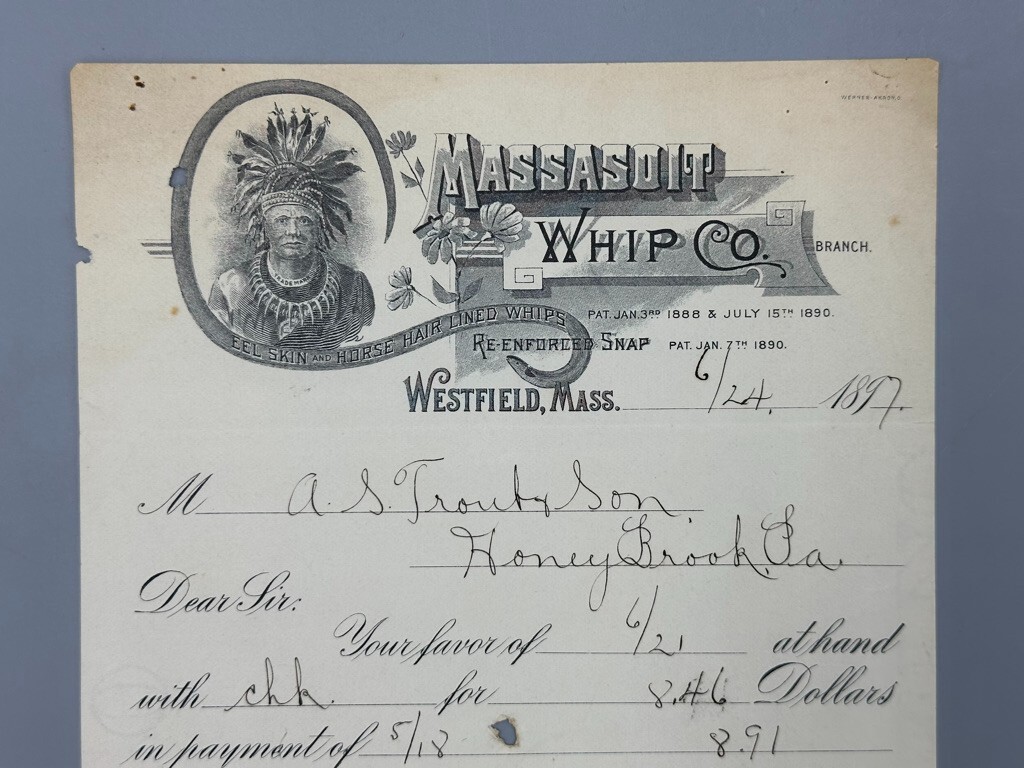 WERNER-AKRON, O.
MASSASOIT
WHIP CO.
BRANCH.
TRADE MARK
EEL SKIN AND HORSE HAIR LINED WHIPS
PAT. JAN. 3RD 1888 & JULY 15TH 1890.
RE-ENFORCED SNAP PAT. JAN. 7TH 1890.
WESTFIELD, MASS. 6/24. 1897.
M A. S. Trout & Son
Honey Brook, Pa.
Dear Sir:
Your favor of 6/21 at hand
with chk. for 8.46 Dollars
in payment of 5/18 8.91